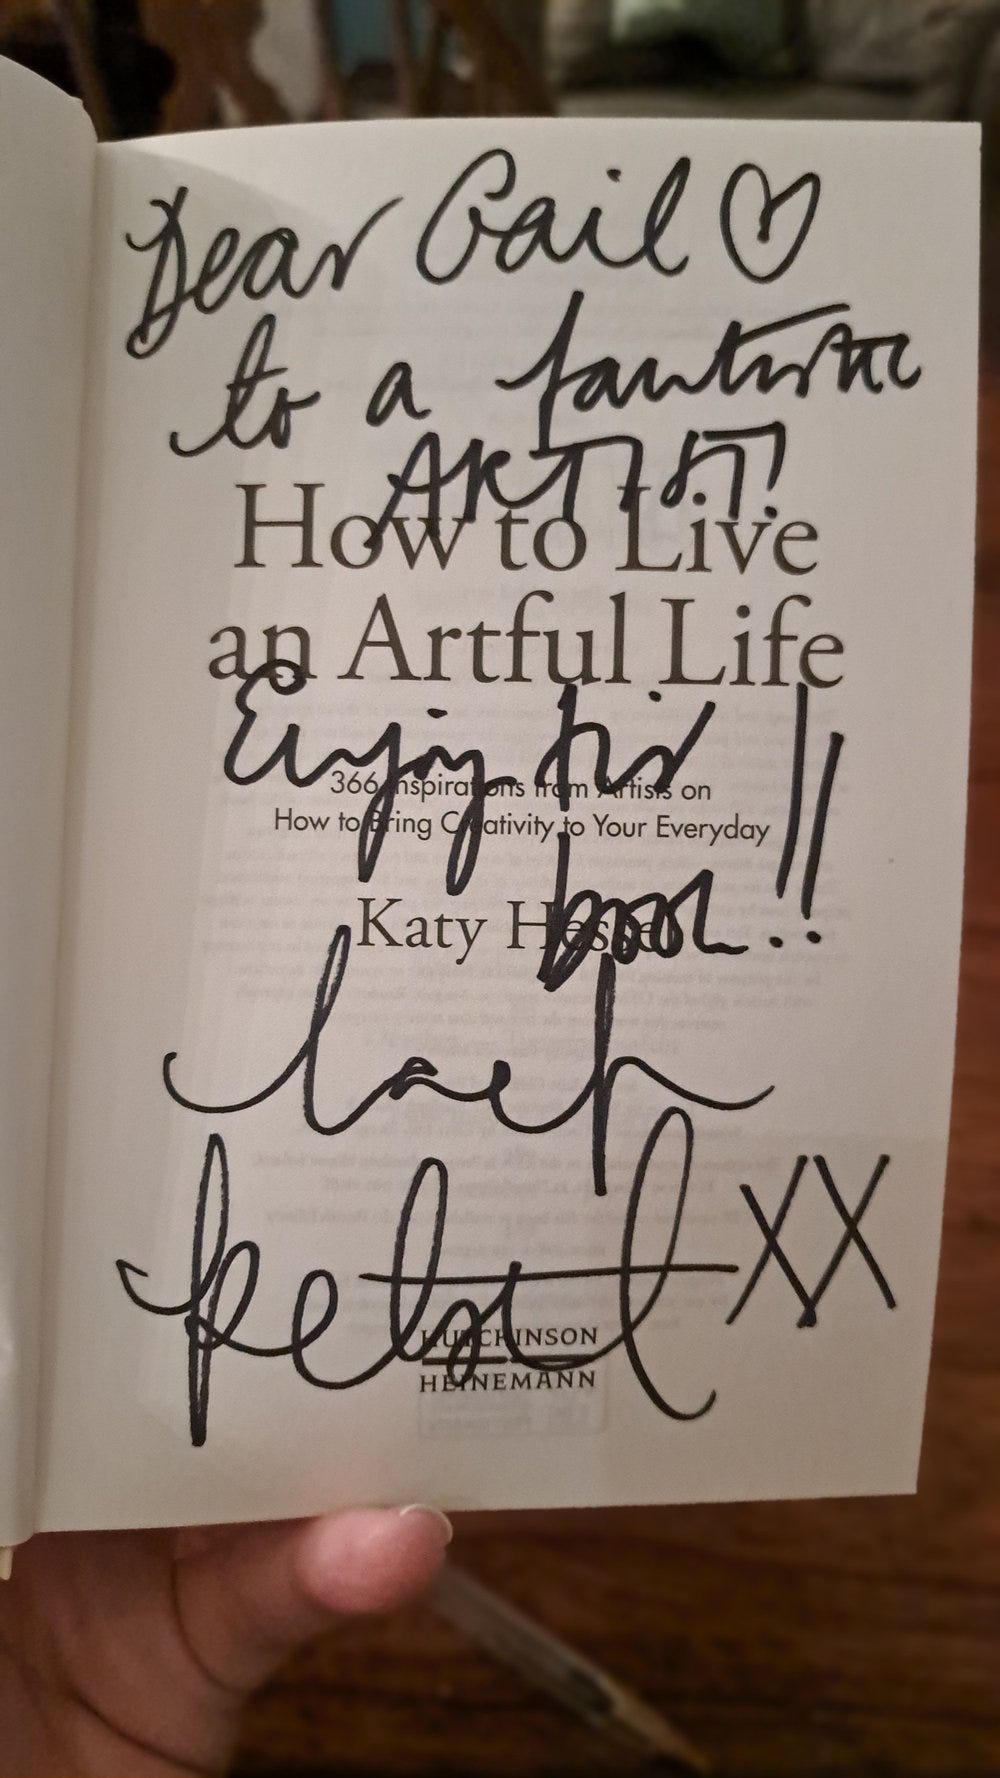 Dear Gail ♡
to a fantastic
ARTIST!
How to Live
an Artful Life
Enjoy this
366 Inspirations from Artists on
How to Bring Creativity to Your Everyday
book!!
Katy Hessel
XX
HUTCHINSON
HEINEMANN